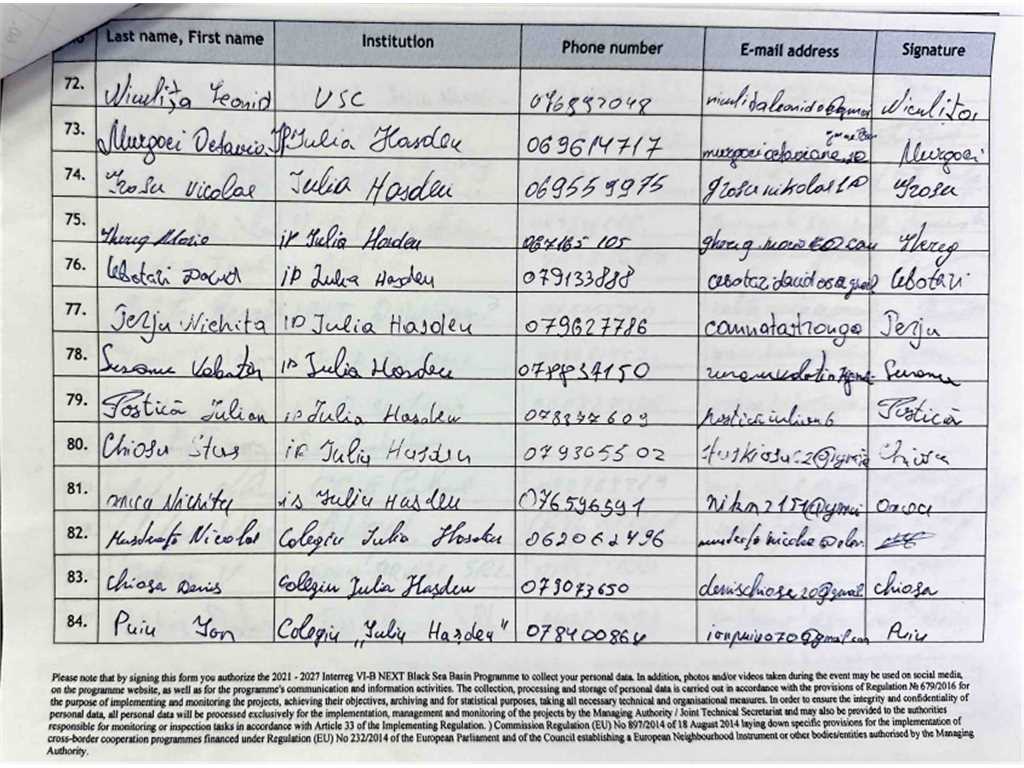 Last name, First name Institution Phone number E-mail address Signature
72. Niculița Leonid USC 076892048 Niculița
73. Murgoci Octavia IP Iulia Hasdeu 069614717 Murgoci
74. Grosu Nicolae Iulia Hasdeu 069559975 Grosu
75. Ghereg IP Iulia Hasdeu 067165 105 Ghereg
76. Cebotari David IP Iulia Hasdeu 079133888 Cebotari
77. Terju Nichita IP Iulia Hasdeu 079627786 Terju
78. IP Iulia Hasdeu
79. Postică Iulian IP Iulia Hasdeu 078377609 Postică
80. Chiosa Stas IP Iulia Hasdeu 0793055 02 Chiosa
81. Nichita Iulia Hasdeu 076596591
82. Nicolae Colegiu Iulia Hasdeu 062062496
83. Chiosa Denis Colegiu Iulia Hasdeu 079073650 denischiosa20@gmail chiosa
84. Puiu Ion Colegiu „Iulia Hașdeu" 078400864 ionpuiu070@gmail.com Puiu
Please note that by signing this form you authorize the 2021 - 2027 Interreg VI-B NEXT Black Sea Basin Programme to collect your personal data. In addition, photos and/or videos taken during the event may be used on social media,
on the programme website, as well as for the programme's communication and information activities. The collection, processing and storage of personal data is carried out in accordance with the provisions of Regulation № 679/2016 for
the purpose of implementing and monitoring the projects, achieving their objectives, archiving and for statistical purposes, taking all necessary technical and organisational measures. In order to ensure the integrity and confidentiality of
personal data, all personal data will be processed exclusively for the implementation, management and monitoring of the projects by the Managing Authority / Joint Technical Secretariat and may also be provided to the authorities
responsible for monitoring or inspection tasks in accordance with Article 33 of the Implementing Regulation. ) Commission Regulation (EU) No 897/2014 of 18 August 2014 laying down specific provisions for the implementation of
cross-border cooperation programmes financed under Regulation (EU) No 232/2014 of the European Parliament and of the Council establishing a European Neighbourhood Instrument or other bodies/entities authorised by the Managing
Authority.